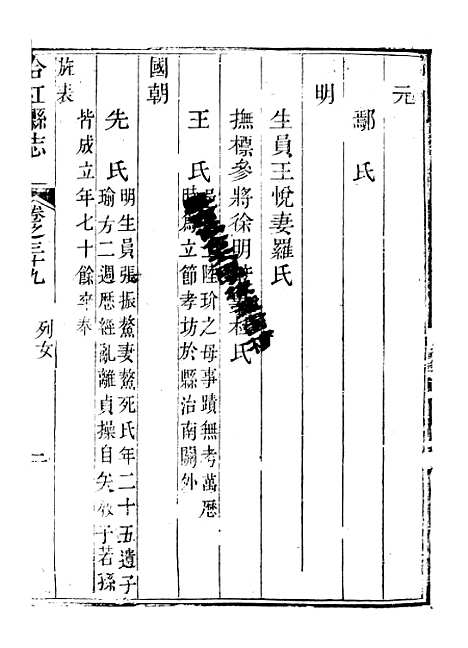 元
鄢氏
明
生員王悅妻羅氏
撫標參將徐明
氏
王氏
陸玠之母事蹟無考萬歷
時為立節孝坊於縣治南關外
國朝
先氏
明生員張振鰲妻鰲死氏年二十五遺子
瑜方二週歷經亂離貞操自矢教子若孫
皆成立年七十餘卒奉
旌表
合江縣志
卷之三十九
列女
二